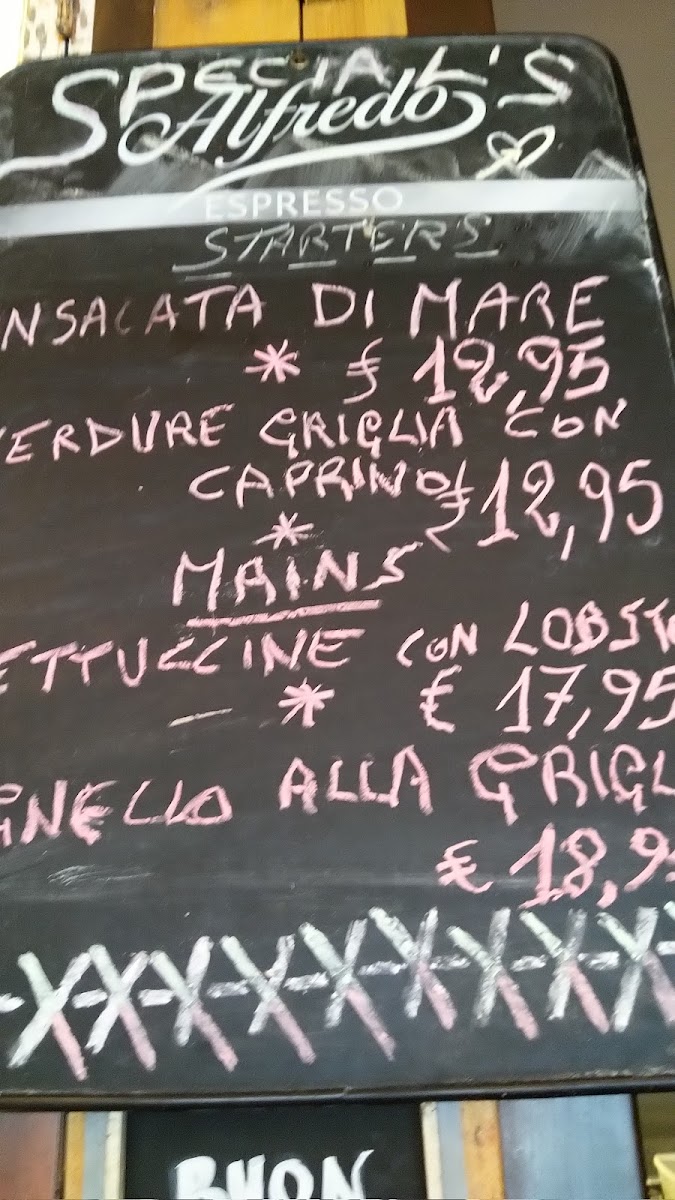 SPECIAL'S
Alfredo
ESPRESSO
STARTERS
NSALATA DI MARE
* € 12,95
VERDURE GRIGLIA CON
CAPRINO € 12,95
*
MAINS
ETTUCCINE CON LOBST
- * € 17,95
GNELLO ALLA GRIGL
€ 18,9
X-X-X-X-X-X-X-X-X
BUON